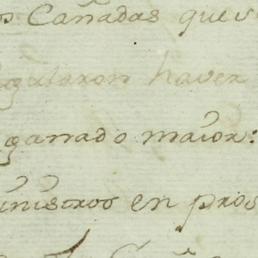 os Cañadas que s
egularon haver
ganado maior:
inistros en pros